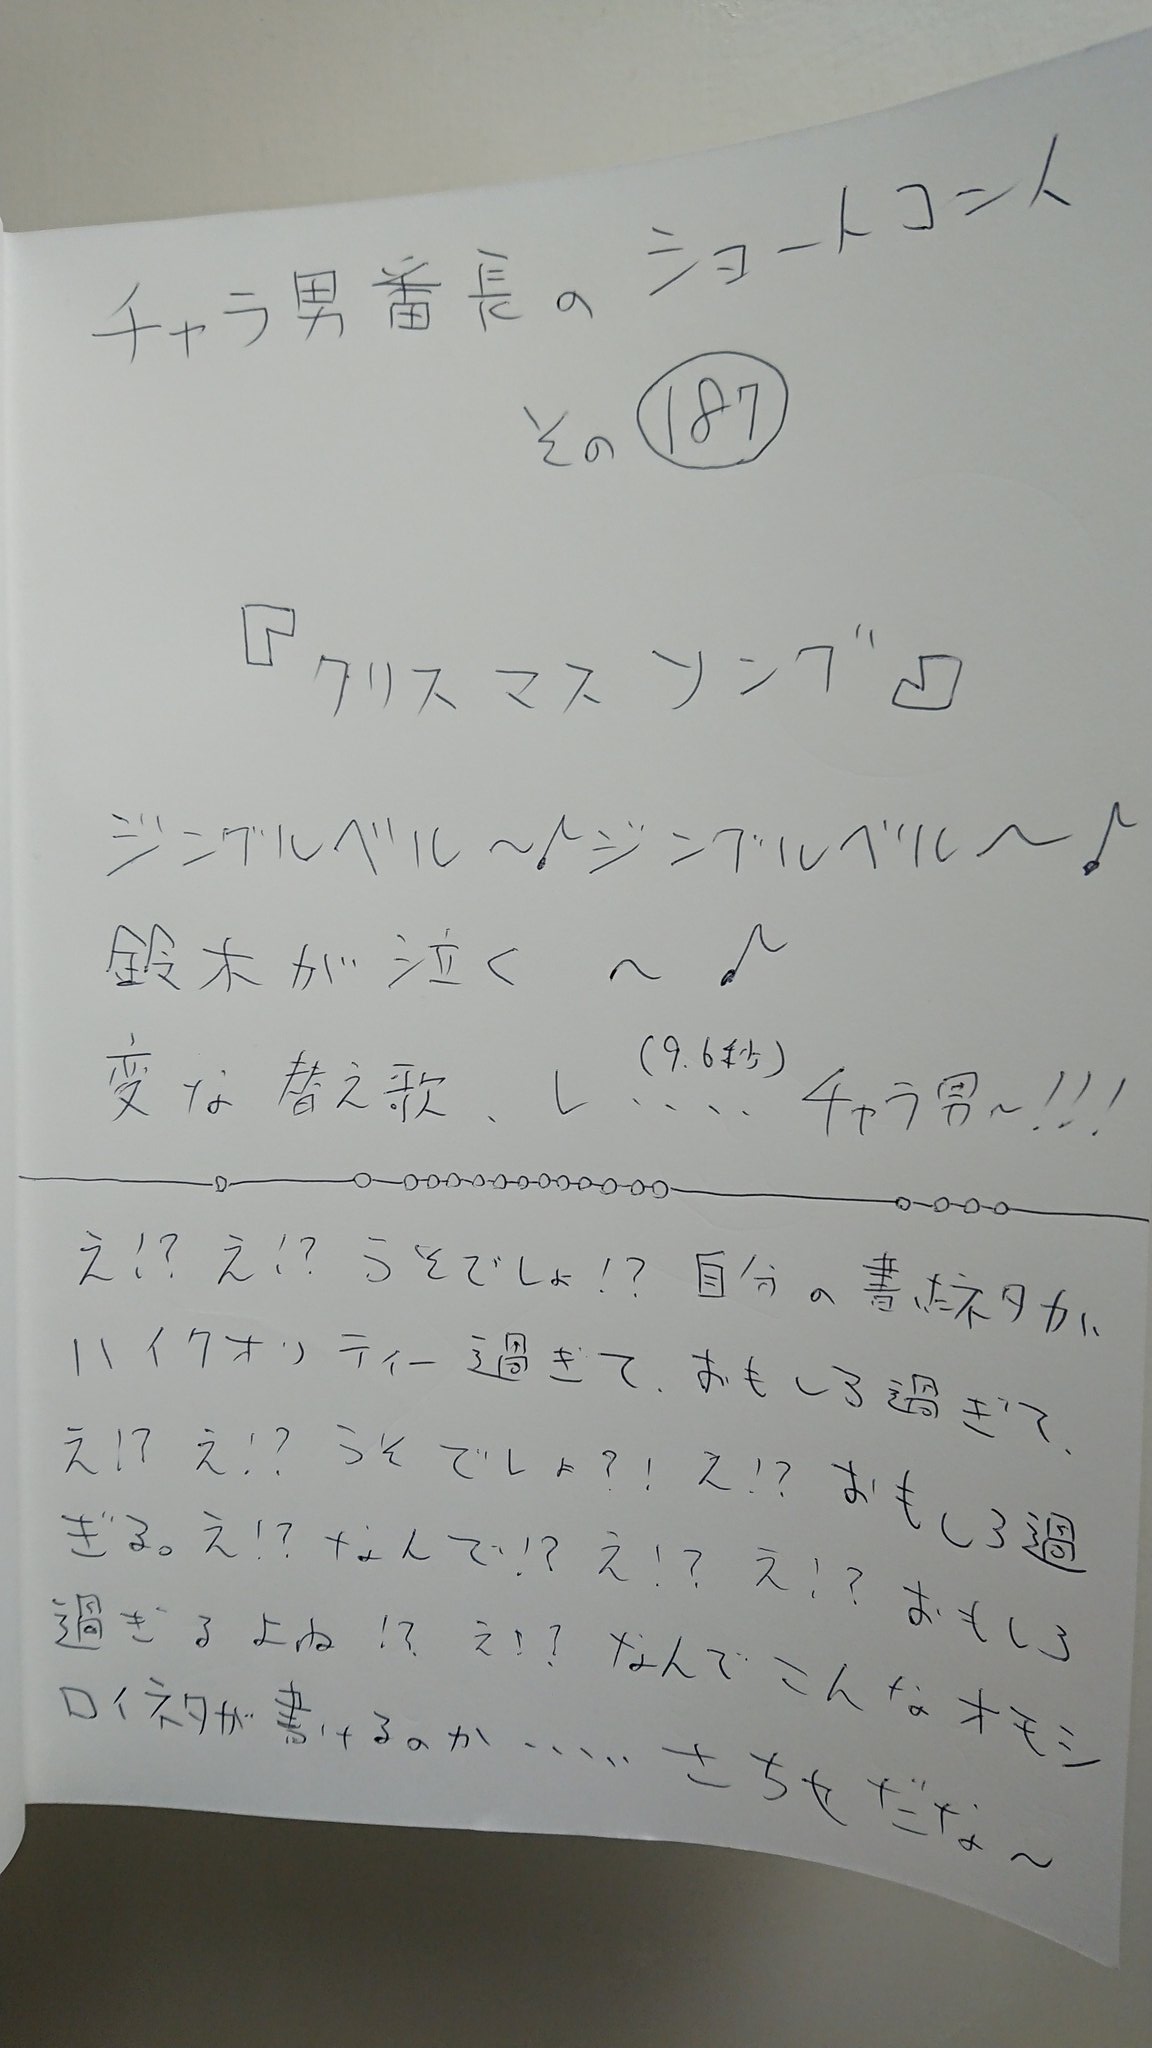 チャラ男番長のショートコント
その187
『クリスマスソング』
ジングルベル〜♪ジングルベル〜♪
鈴木が泣く〜♪
(9.6秒)
変な替え歌、し････チャラ男〜!!!
え!?え!?うそでしょ!?自分の書いたネタが
ハイクオリティー過ぎて、おもしろ過ぎて、
え!?え!?うそでしょ?!え!?おもしろ過
ぎる。え!?なんで!?え!?え!?おもしろ
過ぎるよね!?え!?なんでこんなオモシ
ロイネタが書けるのか･････さちもだな〜